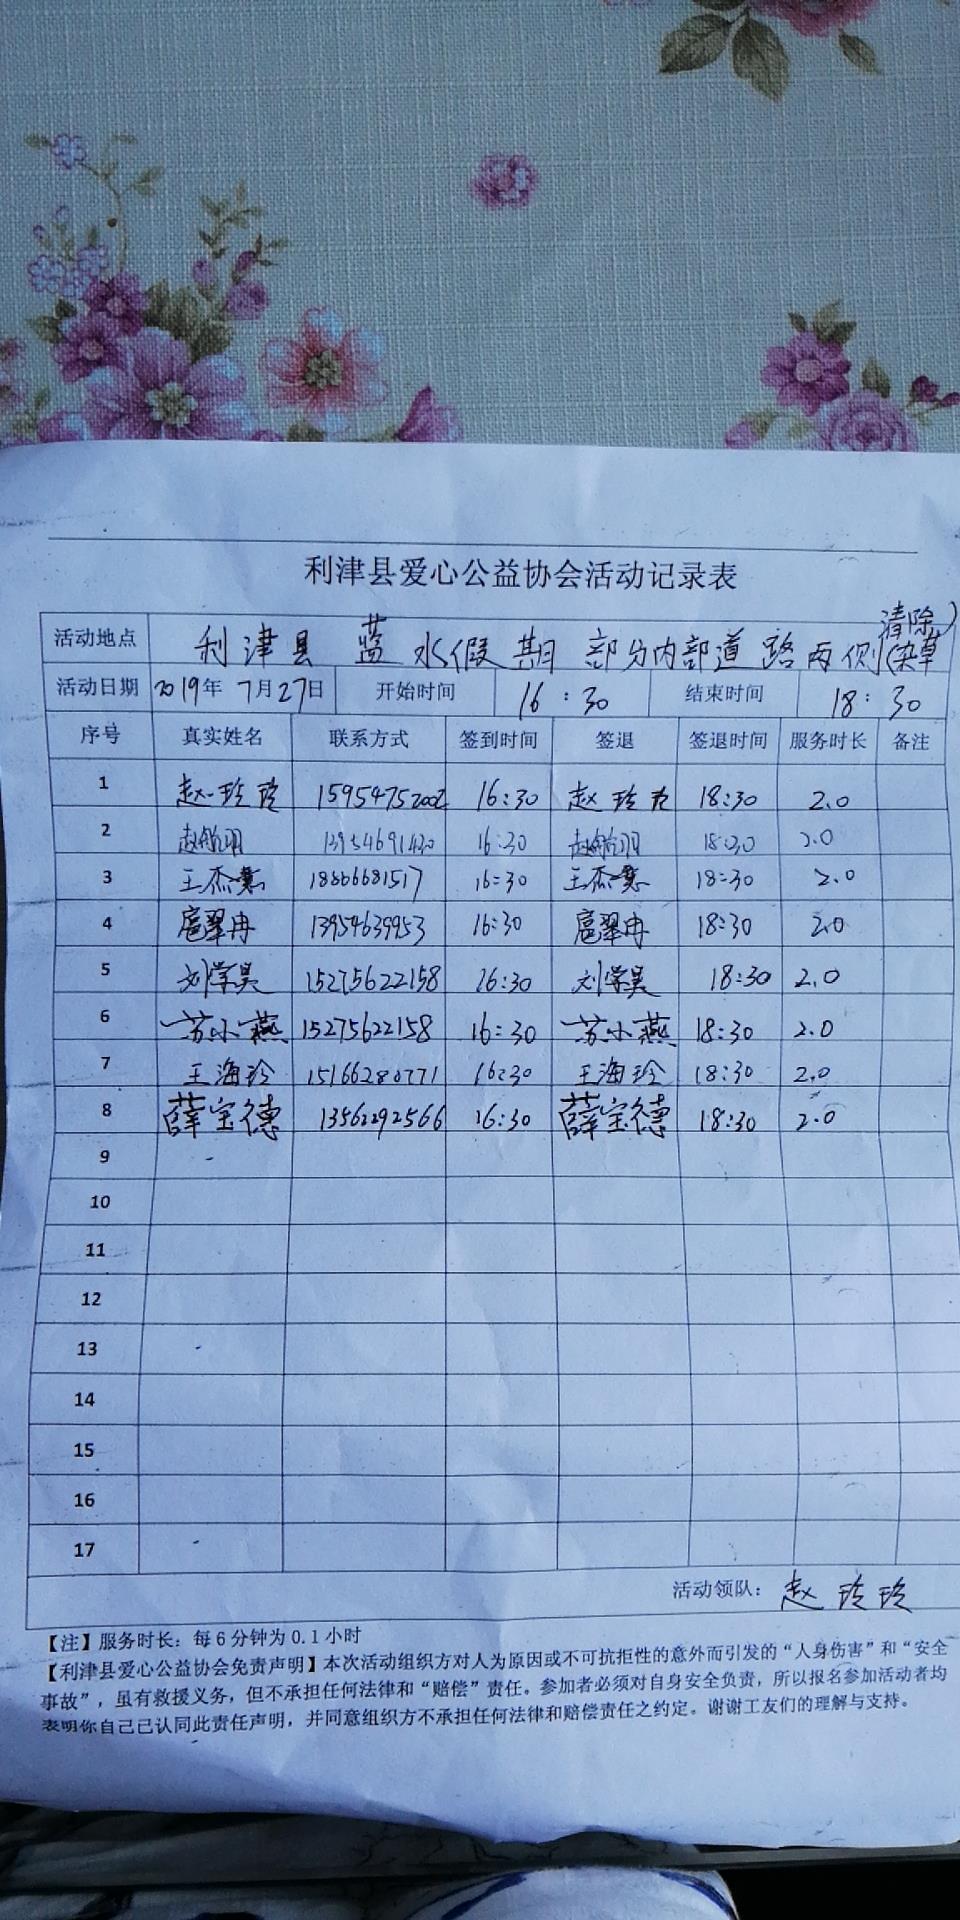 利津县爱心公益协会活动记录表
活动地点 利津县 蓝水假期 部分内部道路两侧(清除杂草)
活动日期 2019年7月27日 开始时间 16:30 结束时间 18:30
序号 真实姓名 联系方式 签到时间 签退 签退时间 服务时长 备注
1 赵玲玲 15954752002 16:30 赵玲玲 18:30 2.0
2 13954691430 16:30 18:30 2.0
3 王杰 18866681517 16:30 王杰 18:30 2.0
4 扈翠冉 13954639953 16:30 扈翠冉 18:30 2.0
5 刘学昊 15275622158 16:30 刘学昊 18:30 2.0
6 苏小燕 15275622158 16:30 苏小燕 18:30 2.0
7 王海玲 15166280771 16:30 王海玲 18:30 2.0
8 薛宝德 13562292566 16:30 薛宝德 18:30 2.0
9
10
11
12
13
14
15
16
17
活动领队: 赵玲玲
【注】服务时长:每6分钟为0.1小时
【利津县爱心公益协会免责声明】本次活动组织方对人为原因或不可抗拒性的意外而引发的“人身伤害”和“安全
事故”,虽有救援义务,但不承担任何法律和“赔偿”责任。参加者必须对自身安全负责,所以报名参加活动者均
表明你自己已认同此责任声明,并同意组织方不承担任何法律和赔偿责任之约定。谢谢工友们的理解与支持。